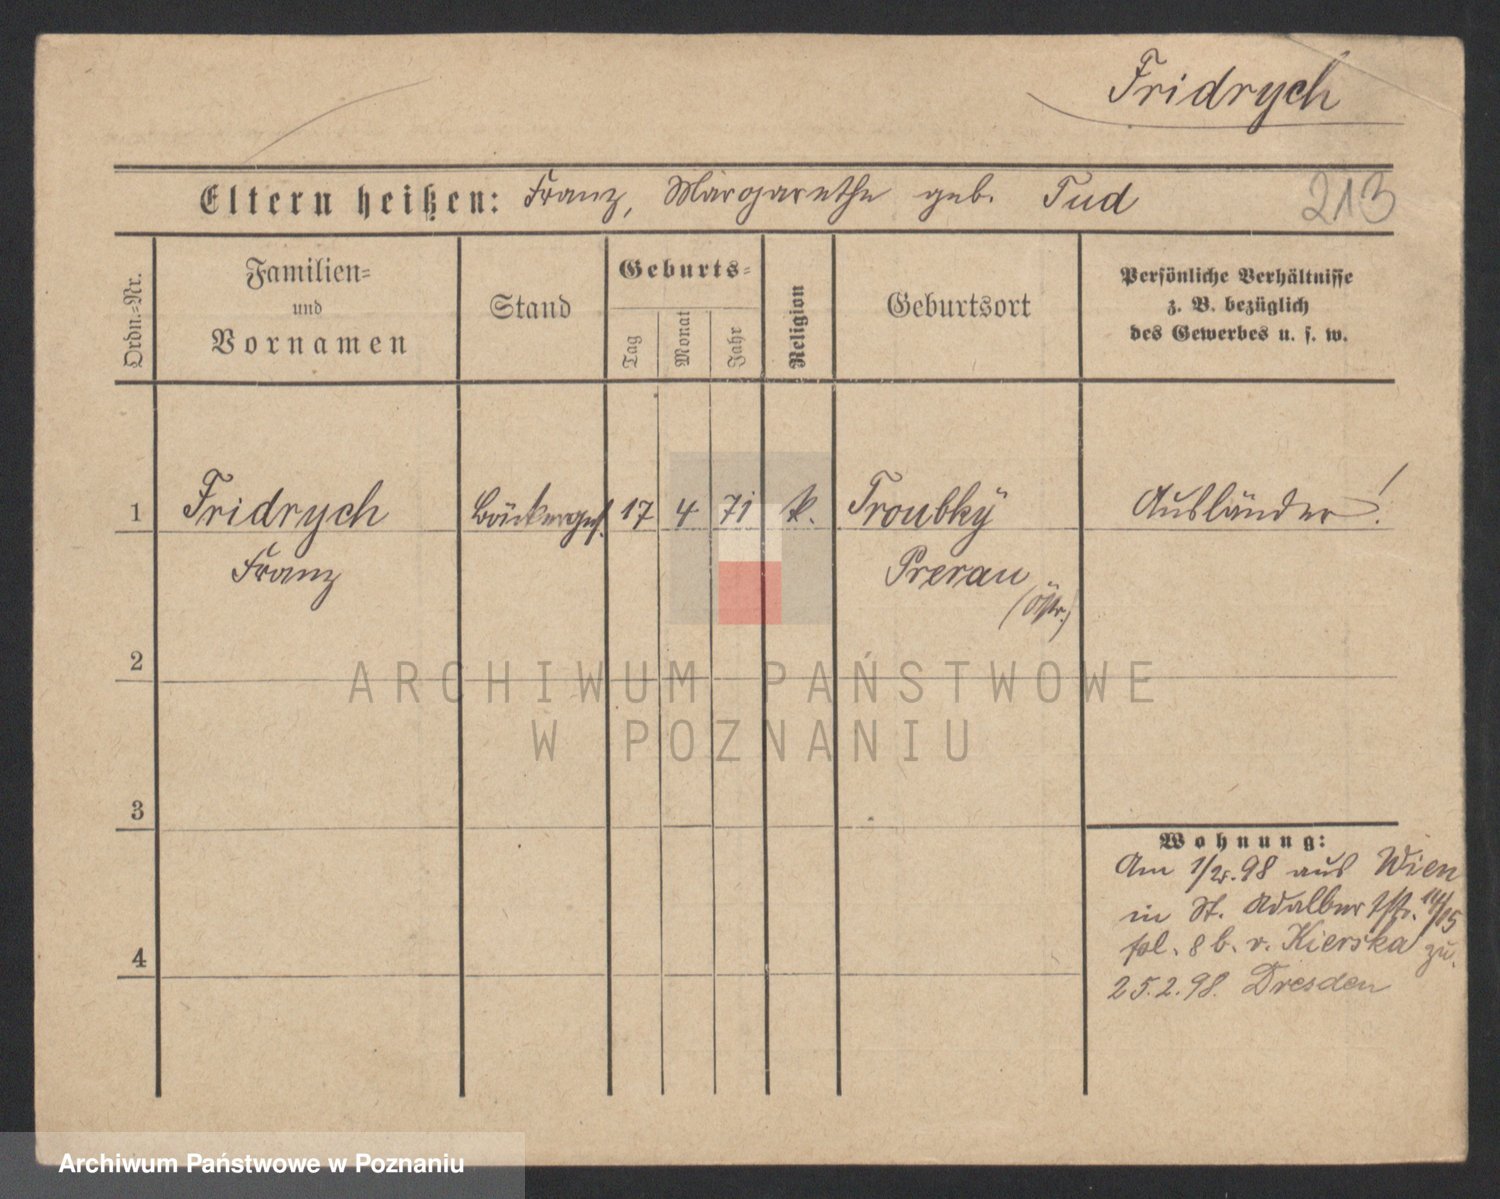 Fridrych
Eltern heißen: Franz, Margarethe geb. Tud
213
Ordn.=Nr.
Familien=
und
Vornamen
Stand
Geburts=
Tag
Monat
Jahr
Religion
Geburtsort
Persönliche Verhältnisse
z. B. bezüglich
des Gewerbes u. s. w.
1 Fridrych Bäckerges. 17 4 71 k. Troubky Ausländer!
Franz Prerau
(Östr.)
2
ARCHIWUM PAŃSTWOWE
W POZNANIU
3
Wohnung:
Am 1/2. 98 aus Wien
in St. Adalbertstr. 14/15
bei v. Kierska zu.
25.2.98. Dresden
4
Archiwum Państwowe w Poznaniu